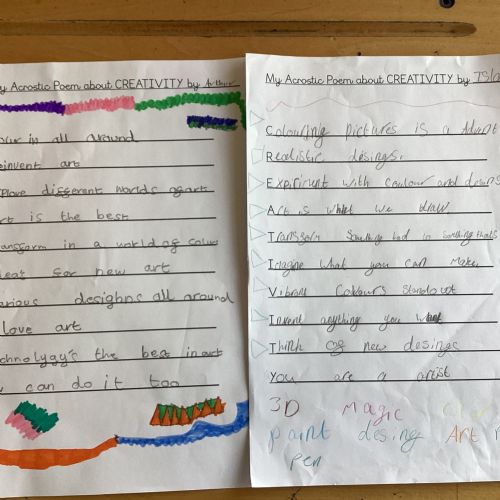 y Acrostic Poem about CREATIVITY by Arthur
our in all around
einvent art
plove different worlds of art
rt is the best
ransform in a world of colour
deas for new art
arious desighns all around
love art
chnolygy's the best in art
can do it too
My Acrostic Poem about CREATIVITY by Isla
Colouring pictures is a
Realistic desings.
Expiriment with coulour and desins
Art is what we draw
Transform something bad in something thats
Imagine what you can make
Vibrant Colours standout
Invent anything you want
Think of new desings
You are a artist
3D magic
paint desing Art
pen